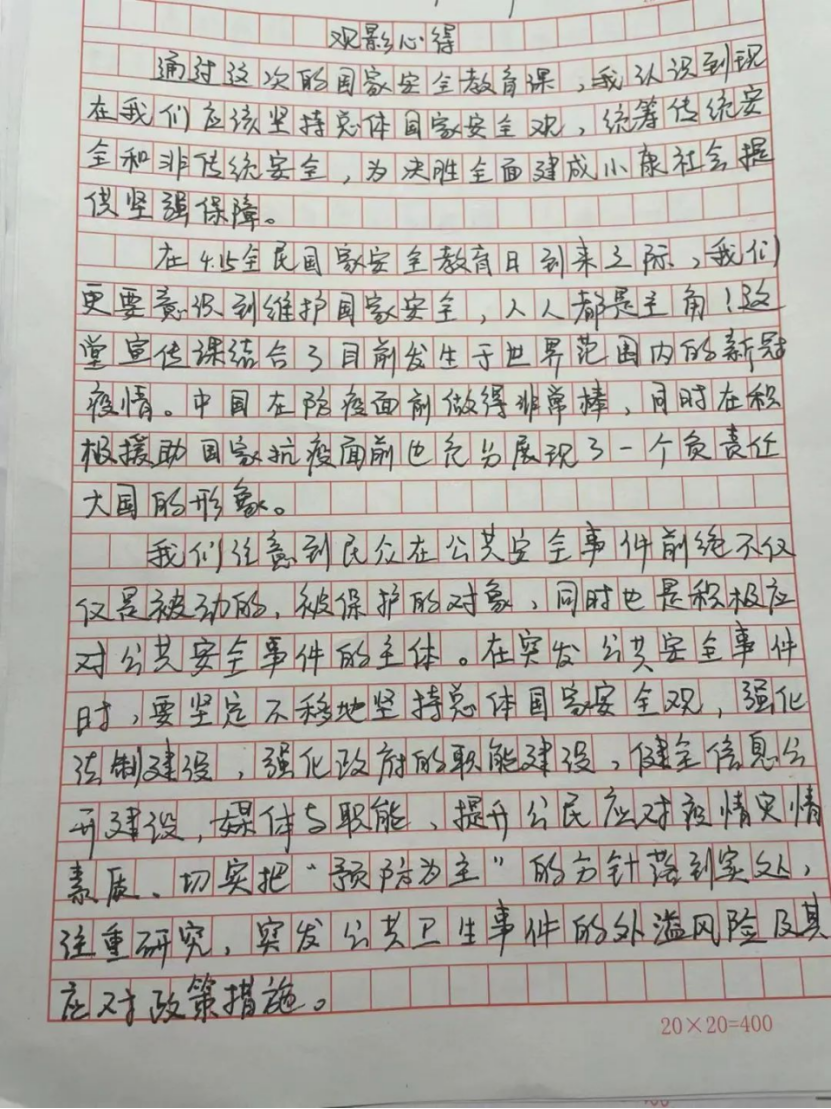 观影心得
通过这次的国家安全教育课，我认识到现
在我们应该坚持总体国家安全观，统筹传统安
全和非传统安全，为决胜全面建成小康社会提
供坚强保障。
在4.15全民国家安全教育日到来之际，我们
更要意识到维护国家安全，人人都是主角！这
堂宣传课结合了目前发生于世界范围内的新冠
疫情。中国在防疫面前做得非常棒，同时在积
极援助国家抗疫面前也充分展现了一个负责任
大国的形象。
我们注意到民众在公共安全事件前绝不仅
仅是被动的、被保护的对象，同时也是积极应
对公共安全事件的主体。在突发公共安全事件
时，要坚定不移地坚持总体国家安全观，强化
法制建设，强化政府的职能建设，健全信息公
开建设，媒体与职能、提升公民应对疫情灾情
素质、切实把“预防为主”的方针落到实处，
注重研究，突发公共卫生事件的外溢风险及其
应对政策措施。
20×20=400